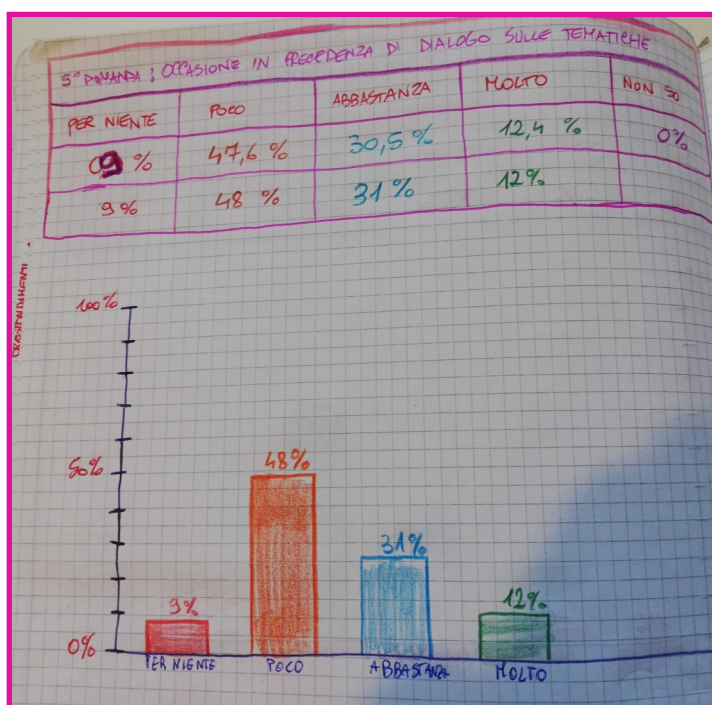 5° DOMANDA: OCCASIONE IN PRECEDENZA DI DIALOGO SULLE TEMATICHE
PER NIENTE POCO ABBASTANZA MOLTO NON SO
09 % 47,6 % 30,5 % 12,4 % 0%
9% 48 % 31 % 12%
100%
50%
0%
9%
48%
31%
12%
PER NIENTE POCO ABBASTANZA MOLTO